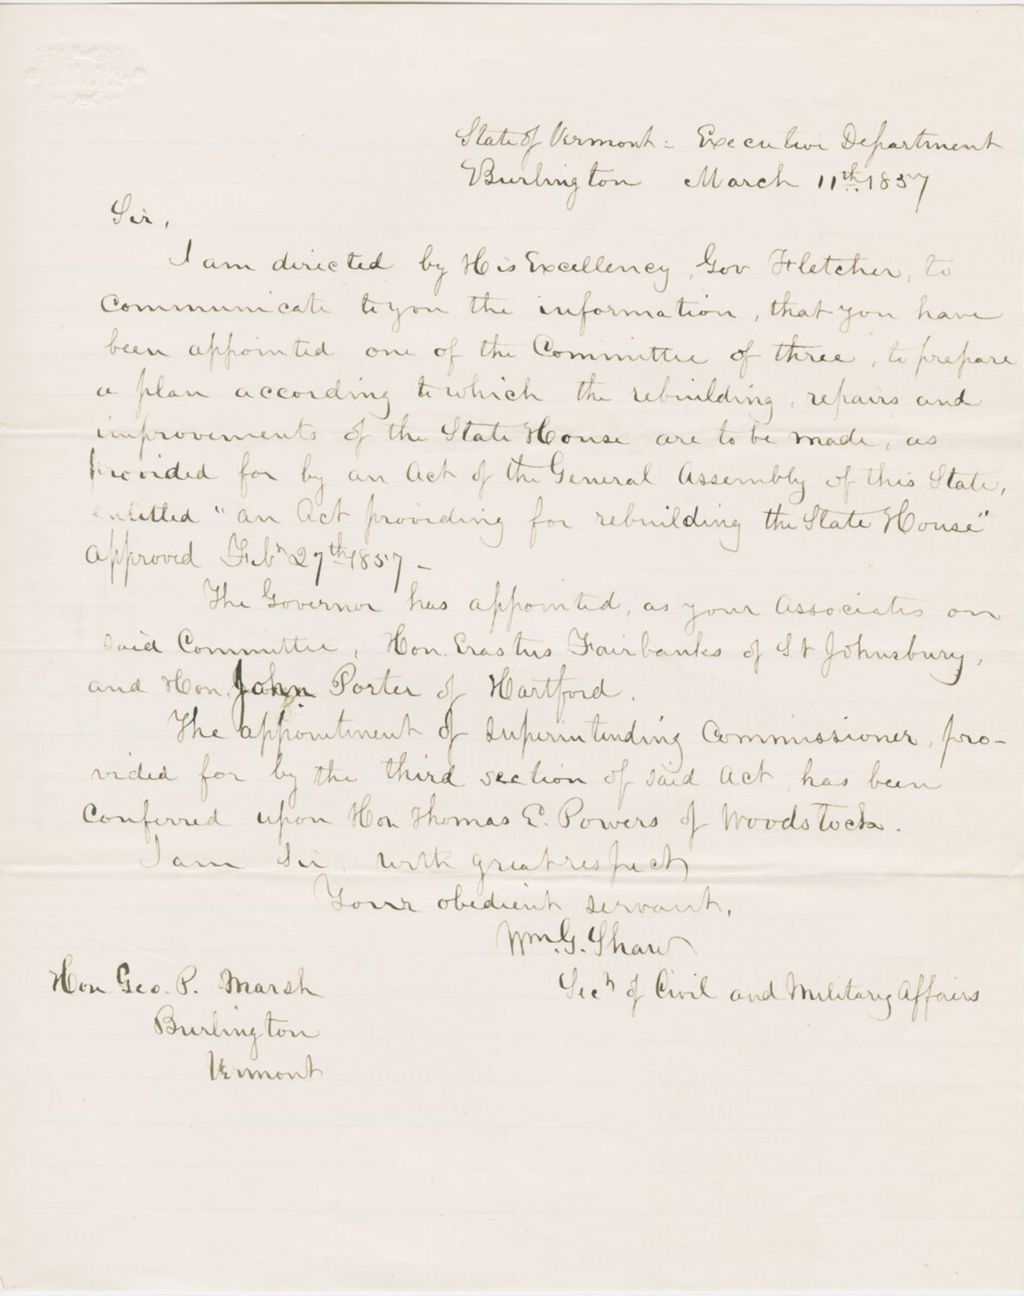 State of Vermont: Executive Department
Burlington March 11th 1857
Sir,
I am directed by His Excellency, Gov Fletcher, to
communicate to you the information, that you have
been appointed one of the Committee of three, to prepare
a plan according to which the rebuilding, repairs and
improvements of the State House are to be made, as
provided for by an Act of the General Assembly of this State,
entitled "an Act providing for rebuilding the State House"
approved Feby 27th 1857 -
The Governor has appointed, as your Associates on
said Committee, Hon. Erastus Fairbanks of St Johnsbury,
and Hon. John Porter of Hartford.
The appointment of Superintending Commissioner, pro-
vided for by the third section of said Act, has been
conferred upon Hon Thomas E. Powers of Woodstock.
I am Sir, with great respect
Your obedient servant,
Wm. G. Shaw
Secy of Civil and Military Affairs
Hon Geo. P. Marsh
Burlington
Vermont